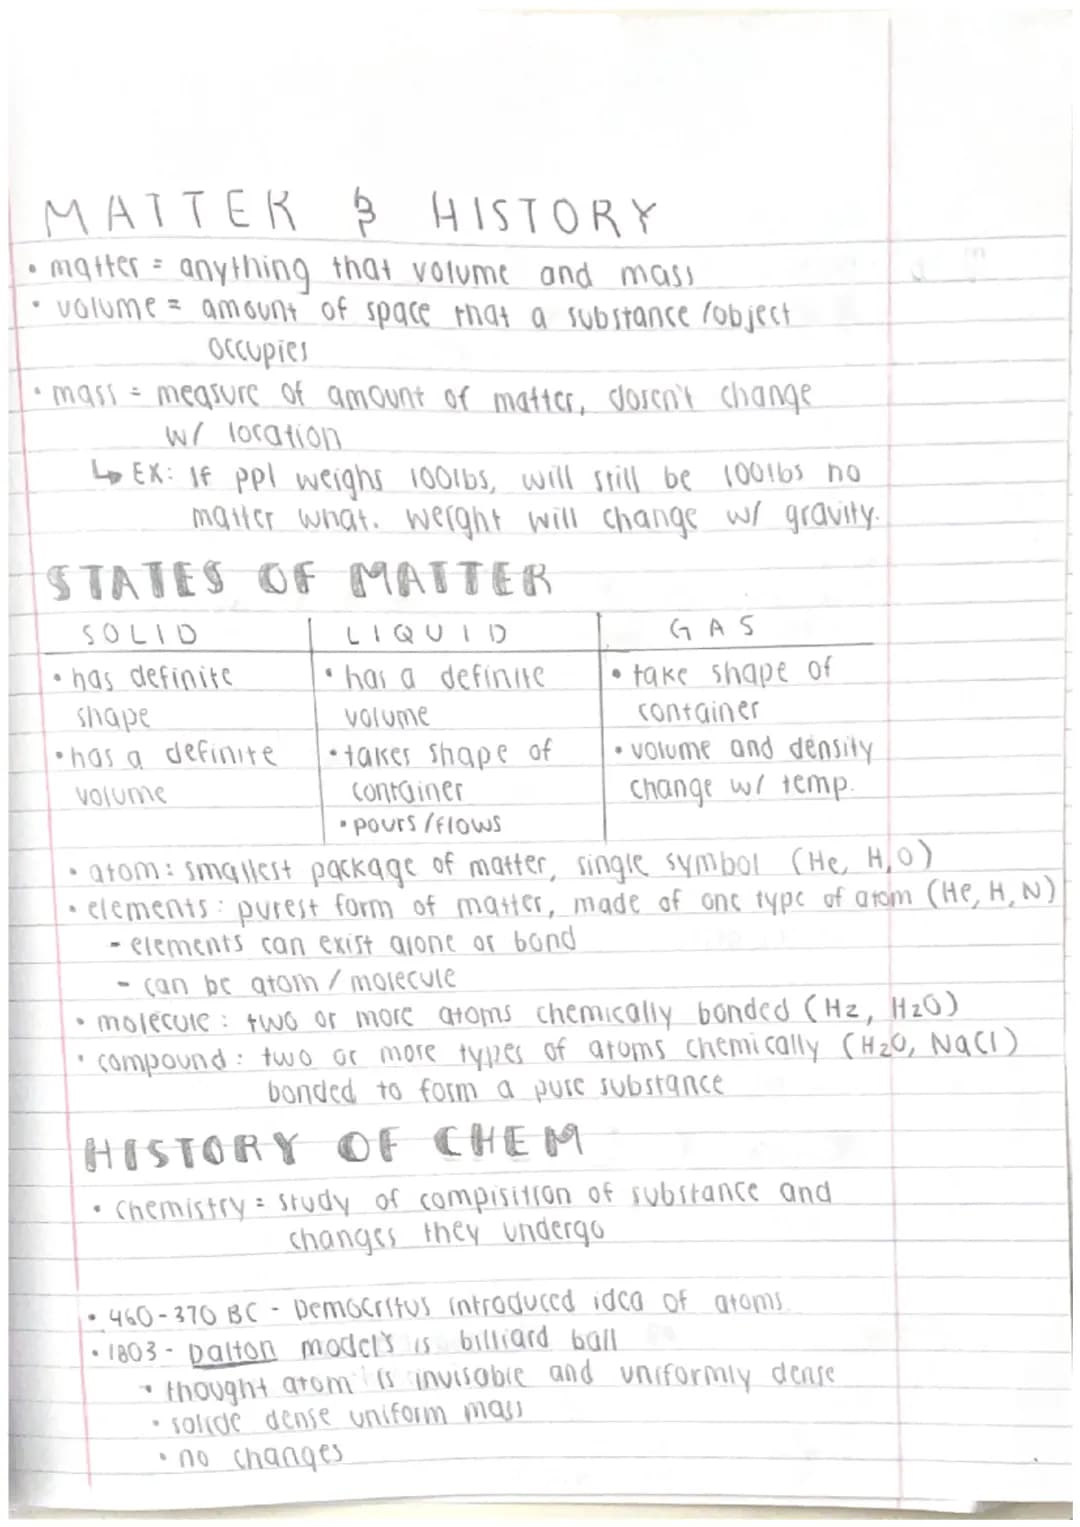 MATTER & HISTORY
• matter = anything that volume and mass
• volume = amount of space that a substance/object
occupies
• mass = measure of amount of matter, doesn't change
w/ location
↳ EX: If ppl weighs 100lbs, will still be 100lbs no
matter what. weight will change w/ gravity.
STATES OF MATTER
SOLID LIQUID GAS
• has definite • has a definite • take shape of
shape volume container
• has a definite • takes shape of • volume and density
volume container change w/ temp.
• pours/flows
• atom: smallest package of matter, single symbol (He, H, O)
• elements: purest form of matter, made of one type of atom (He, H, N)
- elements can exist alone or bond
- can be atom / molecule
• molecule: two or more atoms chemically bonded (H2, H2O)
• compound: two or more types of atoms chemically (H2O, NaCl)
bonded to form a pure substance
HISTORY OF CHEM
• Chemistry = study of compisition of substance and
changes they undergo
• 460-370 BC - Democritus introduced idea of atoms
• 1803 - Dalton model's is billiard ball
• thought atom is invisable and uniformly dense
• solide dense uniform mass
• no changes